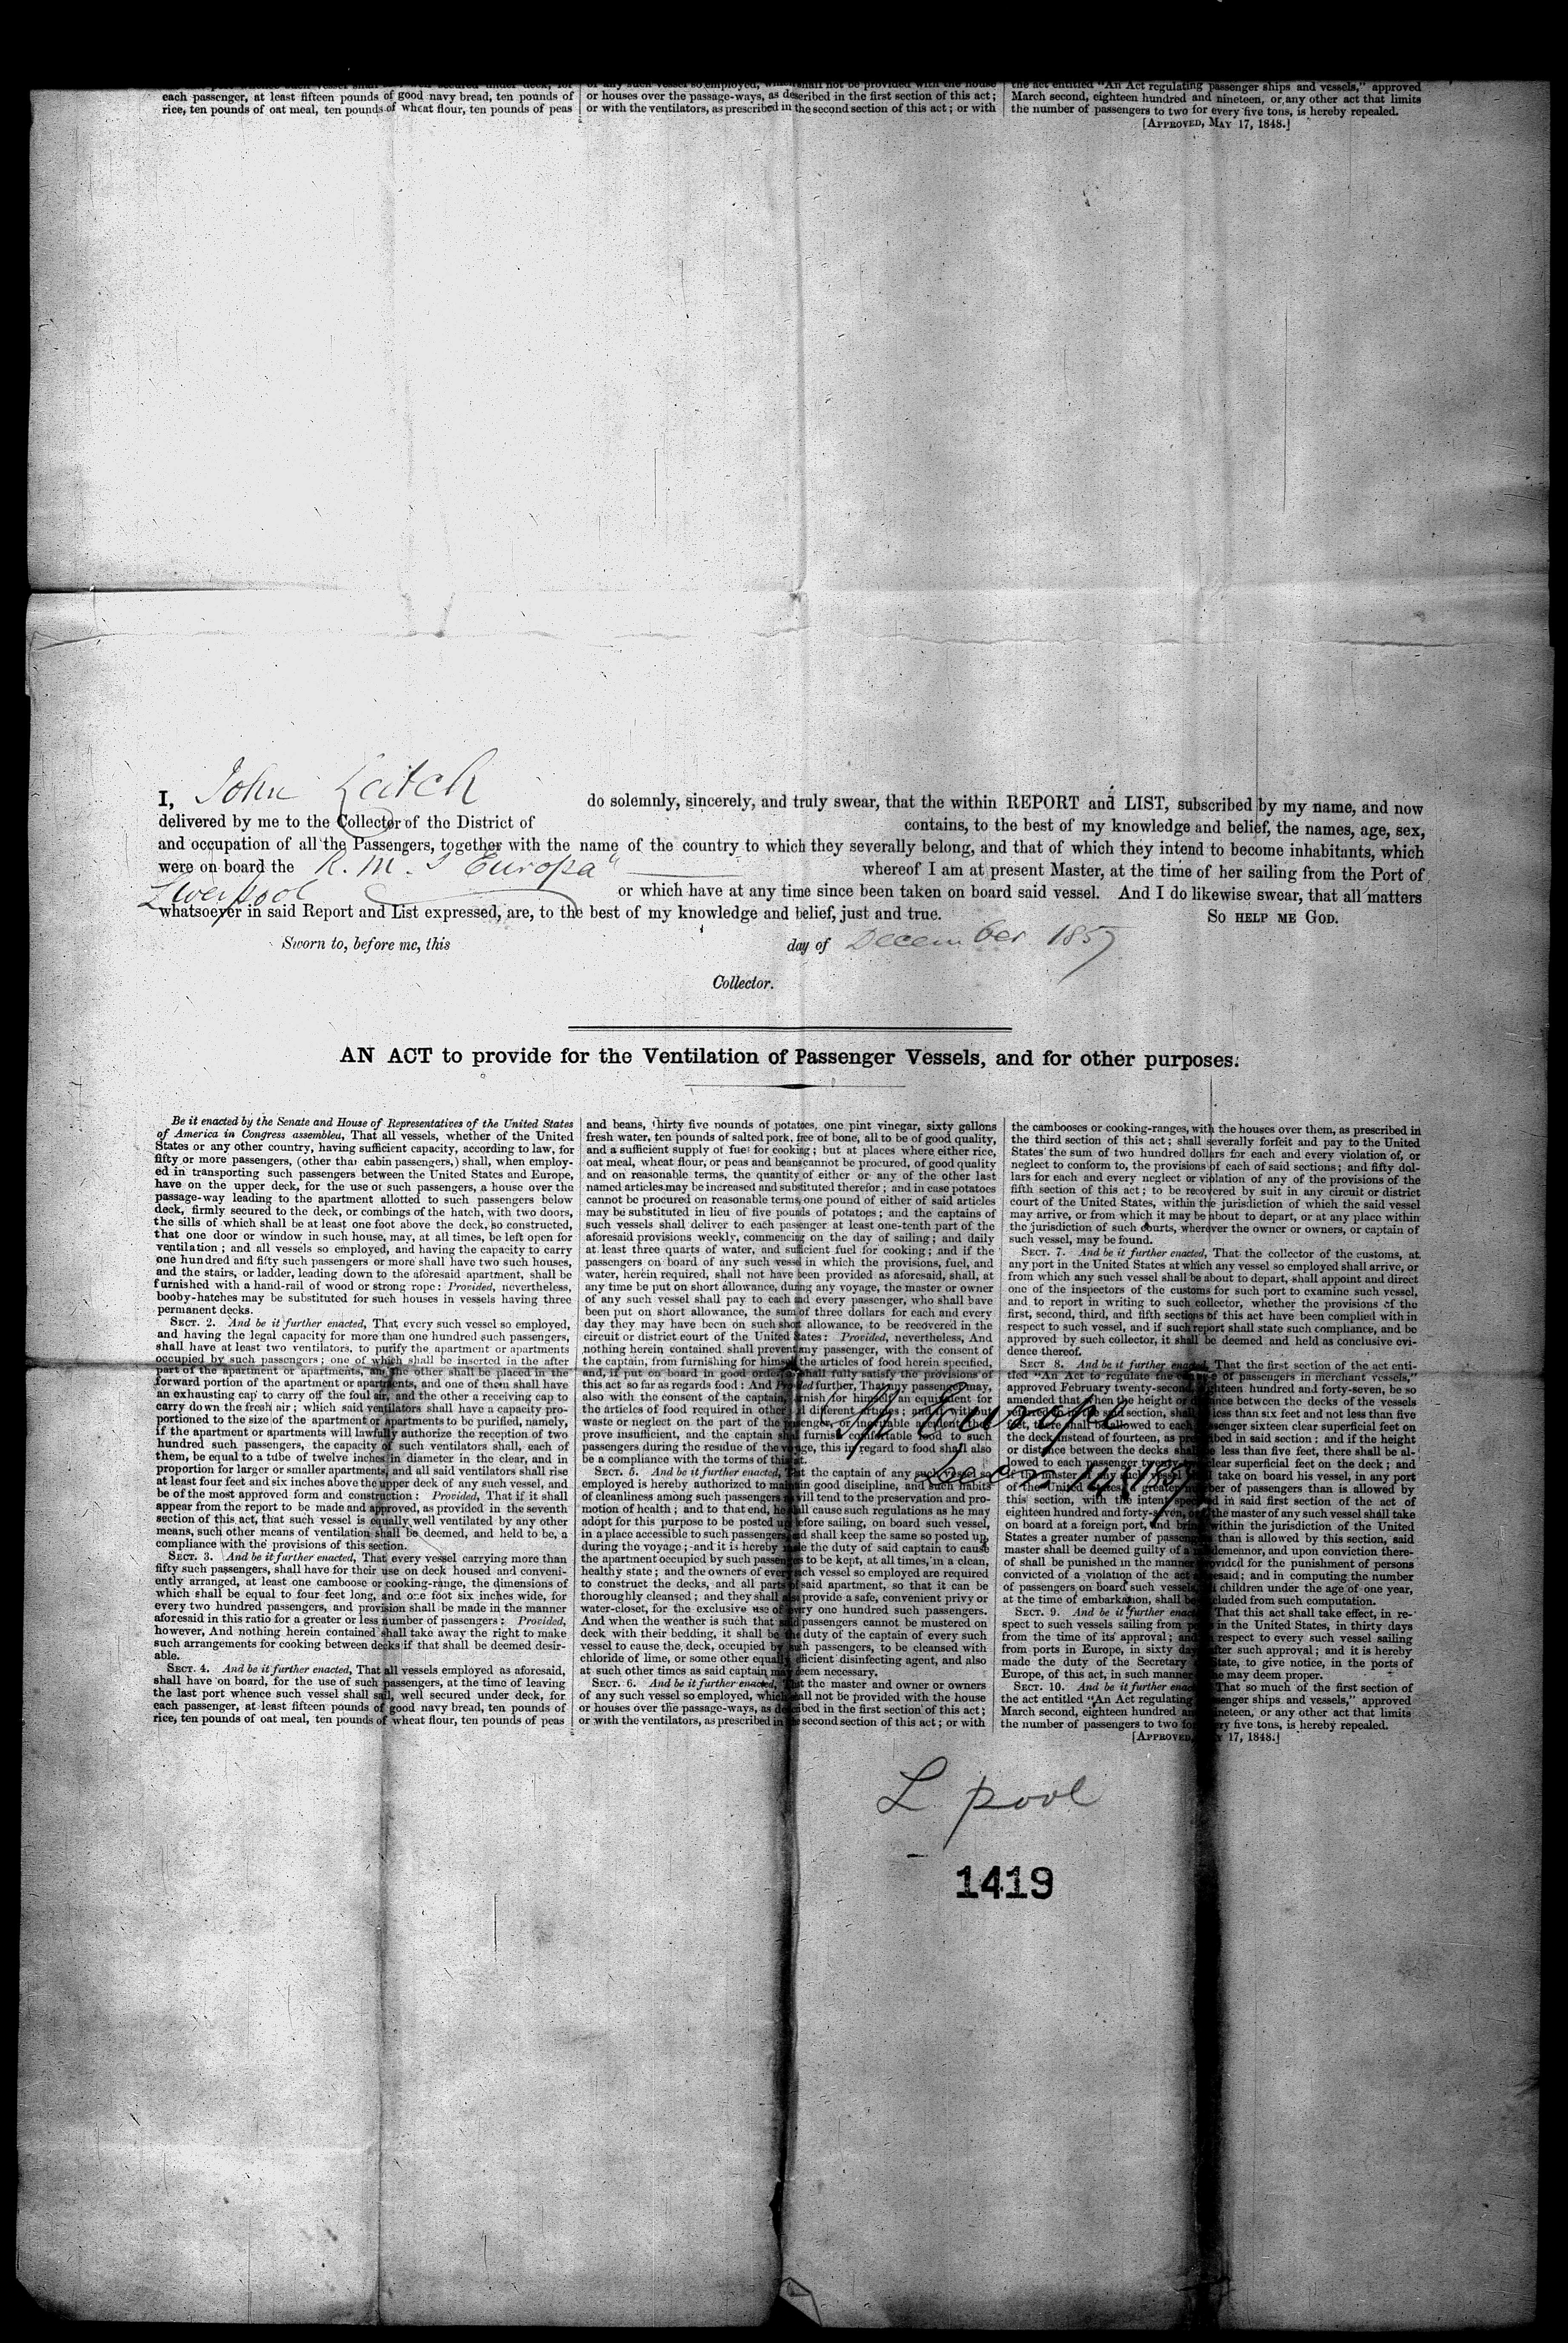 each passenger, at least fifteen pounds of good navy bread, ten pounds of
rice, ten pounds of oat meal, ten pounds of wheat flour, ten pounds of peas
of any such vessel so employed, which shall not be provided with the house
or houses over the passage-ways, as described in the first section of this act;
or with the ventilators, as prescribed in the second section of this act; or with
the act entitled "An Act regulating passenger ships and vessels," approved
March second, eighteen hundred and nineteen, or any other act that limits
the number of passengers to two for every five tons, is hereby repealed.
[APPROVED, MAY 17, 1848.]
I, John Leitch do solemnly, sincerely, and truly swear, that the within REPORT and LIST, subscribed by my name, and now
delivered by me to the Collector of the District of contains, to the best of my knowledge and belief, the names, age, sex,
and occupation of all the Passengers, together with the name of the country to which they severally belong, and that of which they intend to become inhabitants, which
were on board the R. M. S Europa" whereof I am at present Master, at the time of her sailing from the Port of
Liverpool or which have at any time since been taken on board said vessel. And I do likewise swear, that all matters
whatsoever in said Report and List expressed, are, to the best of my knowledge and belief, just and true. SO HELP ME GOD.
Sworn to, before me, this day of December 1857
Collector.
AN ACT to provide for the Ventilation of Passenger Vessels, and for other purposes.
Be it enacted by the Senate and House of Representatives of the United States
of America in Congress assembled, That all vessels, whether of the United
States or any other country, having sufficient capacity, according to law, for
fifty or more passengers, (other than cabin passengers,) shall, when employ-
ed in transporting such passengers between the United States and Europe,
have on the upper deck, for the use of such passengers, a house over the
passage-way leading to the apartment allotted to such passengers below
deck, firmly secured to the deck, or combings of the hatch, with two doors,
the sills of which shall be at least one foot above the deck, so constructed,
that one door or window in such house, may, at all times, be left open for
ventilation; and all vessels so employed, and having the capacity to carry
one hundred and fifty such passengers or more shall have two such houses,
and the stairs, or ladder, leading down to the aforesaid apartment, shall be
furnished with a hand-rail of wood or strong rope: Provided, nevertheless,
booby-hatches may be substituted for such houses in vessels having three
permanent decks.
SECT. 2. And be it further enacted, That every such vessel so employed,
and having the legal capacity for more than one hundred such passengers,
shall have at least two ventilators, to purify the apartment or apartments
occupied by such passengers; one of which shall be inserted in the after
part of the apartment or apartments, and the other shall be placed in the
forward portion of the apartment or apartments, and one of them shall have
an exhausting cap to carry off the foul air, and the other a receiving cap to
carry down the fresh air; which said ventilators shall have a capacity pro-
portioned to the size of the apartment or apartments to be purified, namely,
if the apartment or apartments will lawfully authorize the reception of two
hundred such passengers, the capacity of such ventilators shall, each of
them, be equal to a tube of twelve inches in diameter in the clear, and in
proportion for larger or smaller apartments, and all said ventilators shall rise
at least four feet and six inches above the upper deck of any such vessel, and
be of the most approved form and construction: Provided, That if it shall
appear from the report to be made and approved, as provided in the seventh
section of this act, that such vessel is equally well ventilated by any other
means, such other means of ventilation shall be deemed, and held to be, a
compliance with the provisions of this section.
SECT. 3. And be it further enacted, That every vessel carrying more than
fifty such passengers, shall have for their use on deck housed and conveni-
ently arranged, at least one camboose or cooking-range, the dimensions of
which shall be equal to four feet long, and one foot six inches wide, for
every two hundred passengers, and provision shall be made in the manner
aforesaid in this ratio for a greater or less number of passengers: Provided,
however, And nothing herein contained shall take away the right to make
such arrangements for cooking between decks if that shall be deemed desir-
able.
SECT. 4. And be it further enacted, That all vessels employed as aforesaid,
shall have on board, for the use of such passengers, at the time of leaving
the last port whence such vessel shall sail, well secured under deck, for
each passenger, at least fifteen pounds of good navy bread, ten pounds of
rice, ten pounds of oat meal, ten pounds of wheat flour, ten pounds of peas
and beans, thirty five pounds of potatoes, one pint vinegar, sixty gallons
fresh water, ten pounds of salted pork, free of bone, all to be of good quality,
and a sufficient supply of fuel for cooking; but at places where either rice,
oat meal, wheat flour, or peas and beans cannot be procured, of good quality
and on reasonable terms, the quantity of either or any of the other last
named articles may be increased and substituted therefor; and in case potatoes
cannot be procured on reasonable terms, one pound of either of said articles
may be substituted in lieu of five pounds of potatoes; and the captains of
such vessels shall deliver to each passenger at least one-tenth part of the
aforesaid provisions weekly, commencing on the day of sailing; and daily
at least three quarts of water, and sufficient fuel for cooking; and if the
passengers on board of any such vessel in which the provisions, fuel, and
water, herein required, shall not have been provided as aforesaid, shall, at
any time be put on short allowance, during any voyage, the master or owner
of any such vessel shall pay to each and every passenger, who shall have
been put on short allowance, the sum of three dollars for each and every
day they may have been on such short allowance, to be recovered in the
circuit or district court of the United States: Provided, nevertheless, And
nothing herein contained shall prevent any passenger, with the consent of
the captain, from furnishing for himself the articles of food herein specified,
and, if put on board in good order, shall fully satisfy the provisions of
this act so far as regards food: And Provided further, That any passenger may,
also with the consent of the captain, furnish for himself an equivalent for
the articles of food required in other and different articles; and if without
waste or neglect on the part of the passenger, or inevitable accident, they
prove insufficient, and the captain shall furnish comfortable food to such
passengers during the residue of the voyage, this in regard to food shall also
be a compliance with the terms of this act.
SECT. 5. And be it further enacted, That the captain of any such vessel so
employed is hereby authorized to maintain good discipline, and such habits
of cleanliness among such passengers as will tend to the preservation and pro-
motion of health; and to that end, he shall cause such regulations as he may
adopt for this purpose to be posted up, before sailing, on board such vessel,
in a place accessible to such passengers, and shall keep the same so posted up,
during the voyage; and it is hereby made the duty of said captain to cause
the apartment occupied by such passengers to be kept, at all times, in a clean,
healthy state; and the owners of every such vessel so employed are required
to construct the decks, and all parts of said apartment, so that it can be
thoroughly cleansed; and they shall also provide a safe, convenient privy or
water-closet, for the exclusive use of every one hundred such passengers.
And when the weather is such that said passengers cannot be mustered on
deck with their bedding, it shall be the duty of the captain of every such
vessel to cause the deck, occupied by such passengers, to be cleansed with
chloride of lime, or some other equally efficient disinfecting agent, and also
at such other times as said captain may deem necessary.
SECT. 6. And be it further enacted, That the master and owner or owners
of any such vessel so employed, which shall not be provided with the house
or houses over the passage-ways, as described in the first section of this act;
or with the ventilators, as prescribed in the second section of this act; or with
the cambooses or cooking-ranges, with the houses over them, as prescribed in
the third section of this act; shall severally forfeit and pay to the United
States the sum of two hundred dollars for each and every violation of, or
neglect to conform to, the provisions of each of said sections; and fifty dol-
lars for each and every neglect or violation of any of the provisions of the
fifth section of this act; to be recovered by suit in any circuit or district
court of the United States, within the jurisdiction of which the said vessel
may arrive, or from which it may be about to depart, or at any place within
the jurisdiction of such courts, wherever the owner or owners, or captain of
such vessel, may be found.
SECT. 7. And be it further enacted, That the collector of the customs, at
any port in the United States at which any vessel so employed shall arrive, or
from which any such vessel shall be about to depart, shall appoint and direct
one of the inspectors of the customs for such port to examine such vessel,
and to report in writing to such collector, whether the provisions of the
first, second, third, and fifth sections of this act have been complied with in
respect to such vessel, and if such report shall state such compliance, and be
approved by such collector, it shall be deemed and held as conclusive evi-
dence thereof.
SECT 8. And be it further enacted, That the first section of the act enti-
tled "An Act to regulate the carriage of passengers in merchant vessels,"
approved February twenty-second, eighteen hundred and forty-seven, be so
amended that when the height or distance between the decks of the vessels
referred to in the said section, shall be less than six feet and not less than five
feet, there shall be allowed to each passenger sixteen clear superficial feet on
the deck instead of fourteen, as prescribed in said section; and if the height
or distance between the decks shall be less than five feet, there shall be al-
lowed to each passenger twenty-two clear superficial feet on the deck; and
if the master of any such vessel shall take on board his vessel, in any port
of the United States, a greater number of passengers than is allowed by
this section, with the intent specified in said first section of the act of
eighteen hundred and forty-seven, or if the master of any such vessel shall take
on board at a foreign port, and bring within the jurisdiction of the United
States a greater number of passengers than is allowed by this section, said
master shall be deemed guilty of a misdemeanor, and upon conviction there-
of shall be punished in the manner provided for the punishment of persons
convicted of a violation of the act aforesaid; and in computing the number
of passengers on board such vessels, all children under the age of one year,
at the time of embarkation, shall be excluded from such computation.
SECT. 9. And be it further enacted, That this act shall take effect, in re-
spect to such vessels sailing from ports in the United States, in thirty days
from the time of its approval; and in respect to every such vessel sailing
from ports in Europe, in sixty days after such approval; and it is hereby
made the duty of the Secretary of State, to give notice, in the ports of
Europe, of this act, in such manner as he may deem proper.
SECT. 10. And be it further enacted, That so much of the first section of
the act entitled "An Act regulating passenger ships and vessels," approved
March second, eighteen hundred and nineteen, or any other act that limits
the number of passengers to two for every five tons, is hereby repealed.
[APPROVED, MAY 17, 1848.]
Europa
L pool
1419